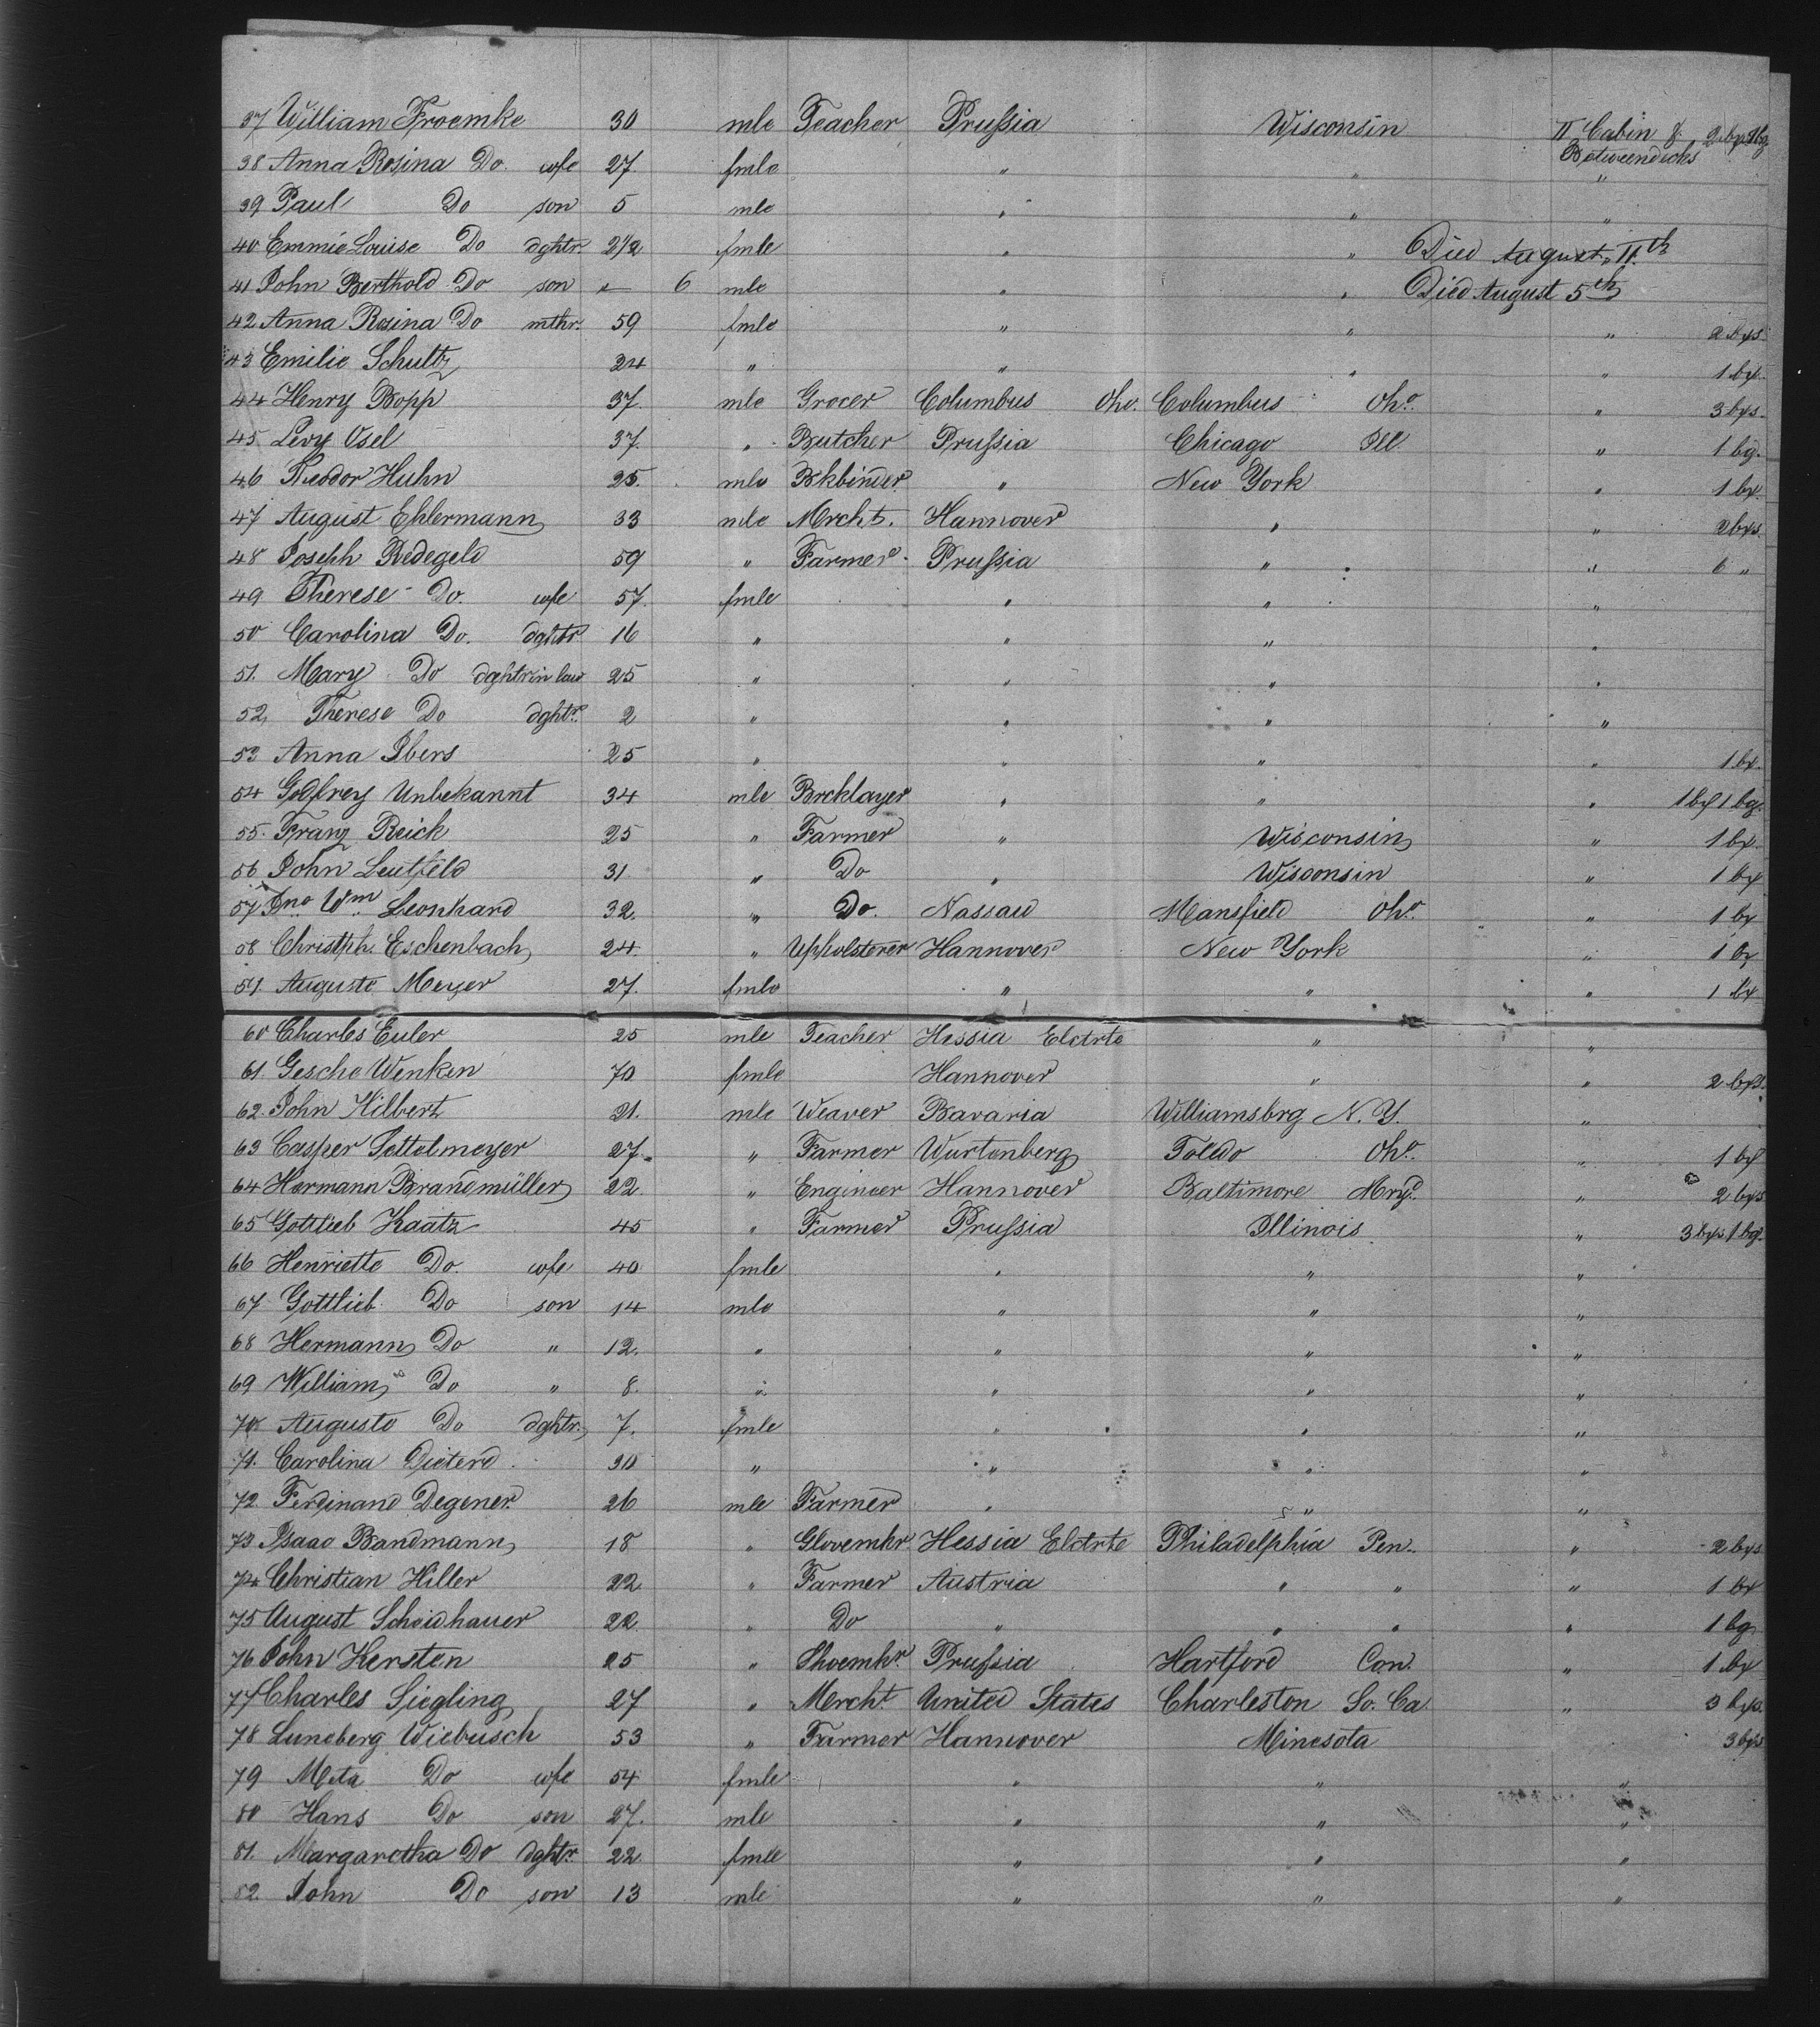 37 William Froemke 30 mle Teacher Prussia Wisconsin II Cabin & 2 bxs 1 bg
Betweendecks
38 Anna Rosina Do. wfe 27. fmle " " "
39 Paul Do son 5 mle " " "
40 Emmie Louise Do dghtr. 2 1/2 fmle " " Died August 11th
41 John Berthold Do son — 6 mle " " Died August 5th
42 Anna Rosina Do mthr. 59 fmle " " " 2 bxs.
43 Emilie Schultz 24 " " " " 1 bx.
44 Henry Bopp 37. mle Grocer Columbus Oho. Columbus Oho. " 3 bxs.
45 Levy Osel 37. " Butcher Prussia Chicago Ill. " 1 bg.
46 Theodor Huhn 25. mle Bkbinder " New York " 1 bx.
47 August Ehlermann 33 mle Mrcht. Hannover " " 2 bxs.
48 Joseph Redegeld 59 " Farmer Prussia " " 6 "
49 Therese Do. wfe 57. fmle " " "
50 Carolina Do. dghtr 16 " " " "
51. Mary Do dghtr in law 25 " " " "
52, Therese Do dghtr. 2 " " " "
53 Anna Ibers 25 " " " " 1 bx.
54 Godfrey Unbekannt 34 mle Brcklayer " " " 1 bx 1 bg.
55. Franz Reick 25 " Farmer " Wisconsin " 1 bx.
56 John Leutfeld 31 " Do " Wisconsin " 1 bx
57 Jno. Wm. Leonhard 32. " Do. Nassau Mansfield Oho. " 1 bx
58 Christph. Eschenbach 24. " Upholsterer Hannover New York " 1 bx
59. Auguste Meyer 27. fmle " " " 1 bx
60 Charles Euler 25 mle Teacher Hessia Elctrte " "
61. Gesche Wenken 70 fmle Hannover " " 2 bxs.
62. John Hilbert 21. mle Weaver Bavaria Williamsbrg N. Y. "
63 Casper Settelmeyer 27. " Farmer Wurtenberg Toledo Oho. " 1 bx
64 Hermann Brandmüller 22. " Engineer Hannover Baltimore Mryd. " 2 bxs
65 Gottlieb Kaatz 45 " Farmer Prussia Illinois " 3 bxs 1 bg.
66 Henriette Do. wfe 40 fmle " " "
67 Gottlieb Do son 14 mle " " "
68 Hermann Do " 12. " " " "
69 William Do " 8. " " " "
70 Auguste Do dghtr. 7. fmle " " "
71. Carolina Dieterd 30 " " " "
72. Ferdinand Degener 26 mle Farmer " " "
73 Isaac Bandmann 18 " Glovemkr Hessia Elctrte Philadelphia Pen. " 2 bxs
74 Christian Hiller 22 " Farmer Austria " " " 1 bx
75 August Scheidhauer 22 " Do " " " " 1 bg.
76 John Kersten 25 " Shoemkr. Prussia Hartford Con. " 1 bx
77 Charles Siegling 27 " Mercht. United States Charleston So. Ca. " 3 bxs.
78 Luneberg Wiebusch 53 " Farmer Hannover Minesota 3 bxs
79 Meta Do wfe 54 fmle " " "
80 Hans Do son 27. mle " " "
81. Margaretha Do dghtr. 22 fmle " " "
82. John Do son 13 mle " " "